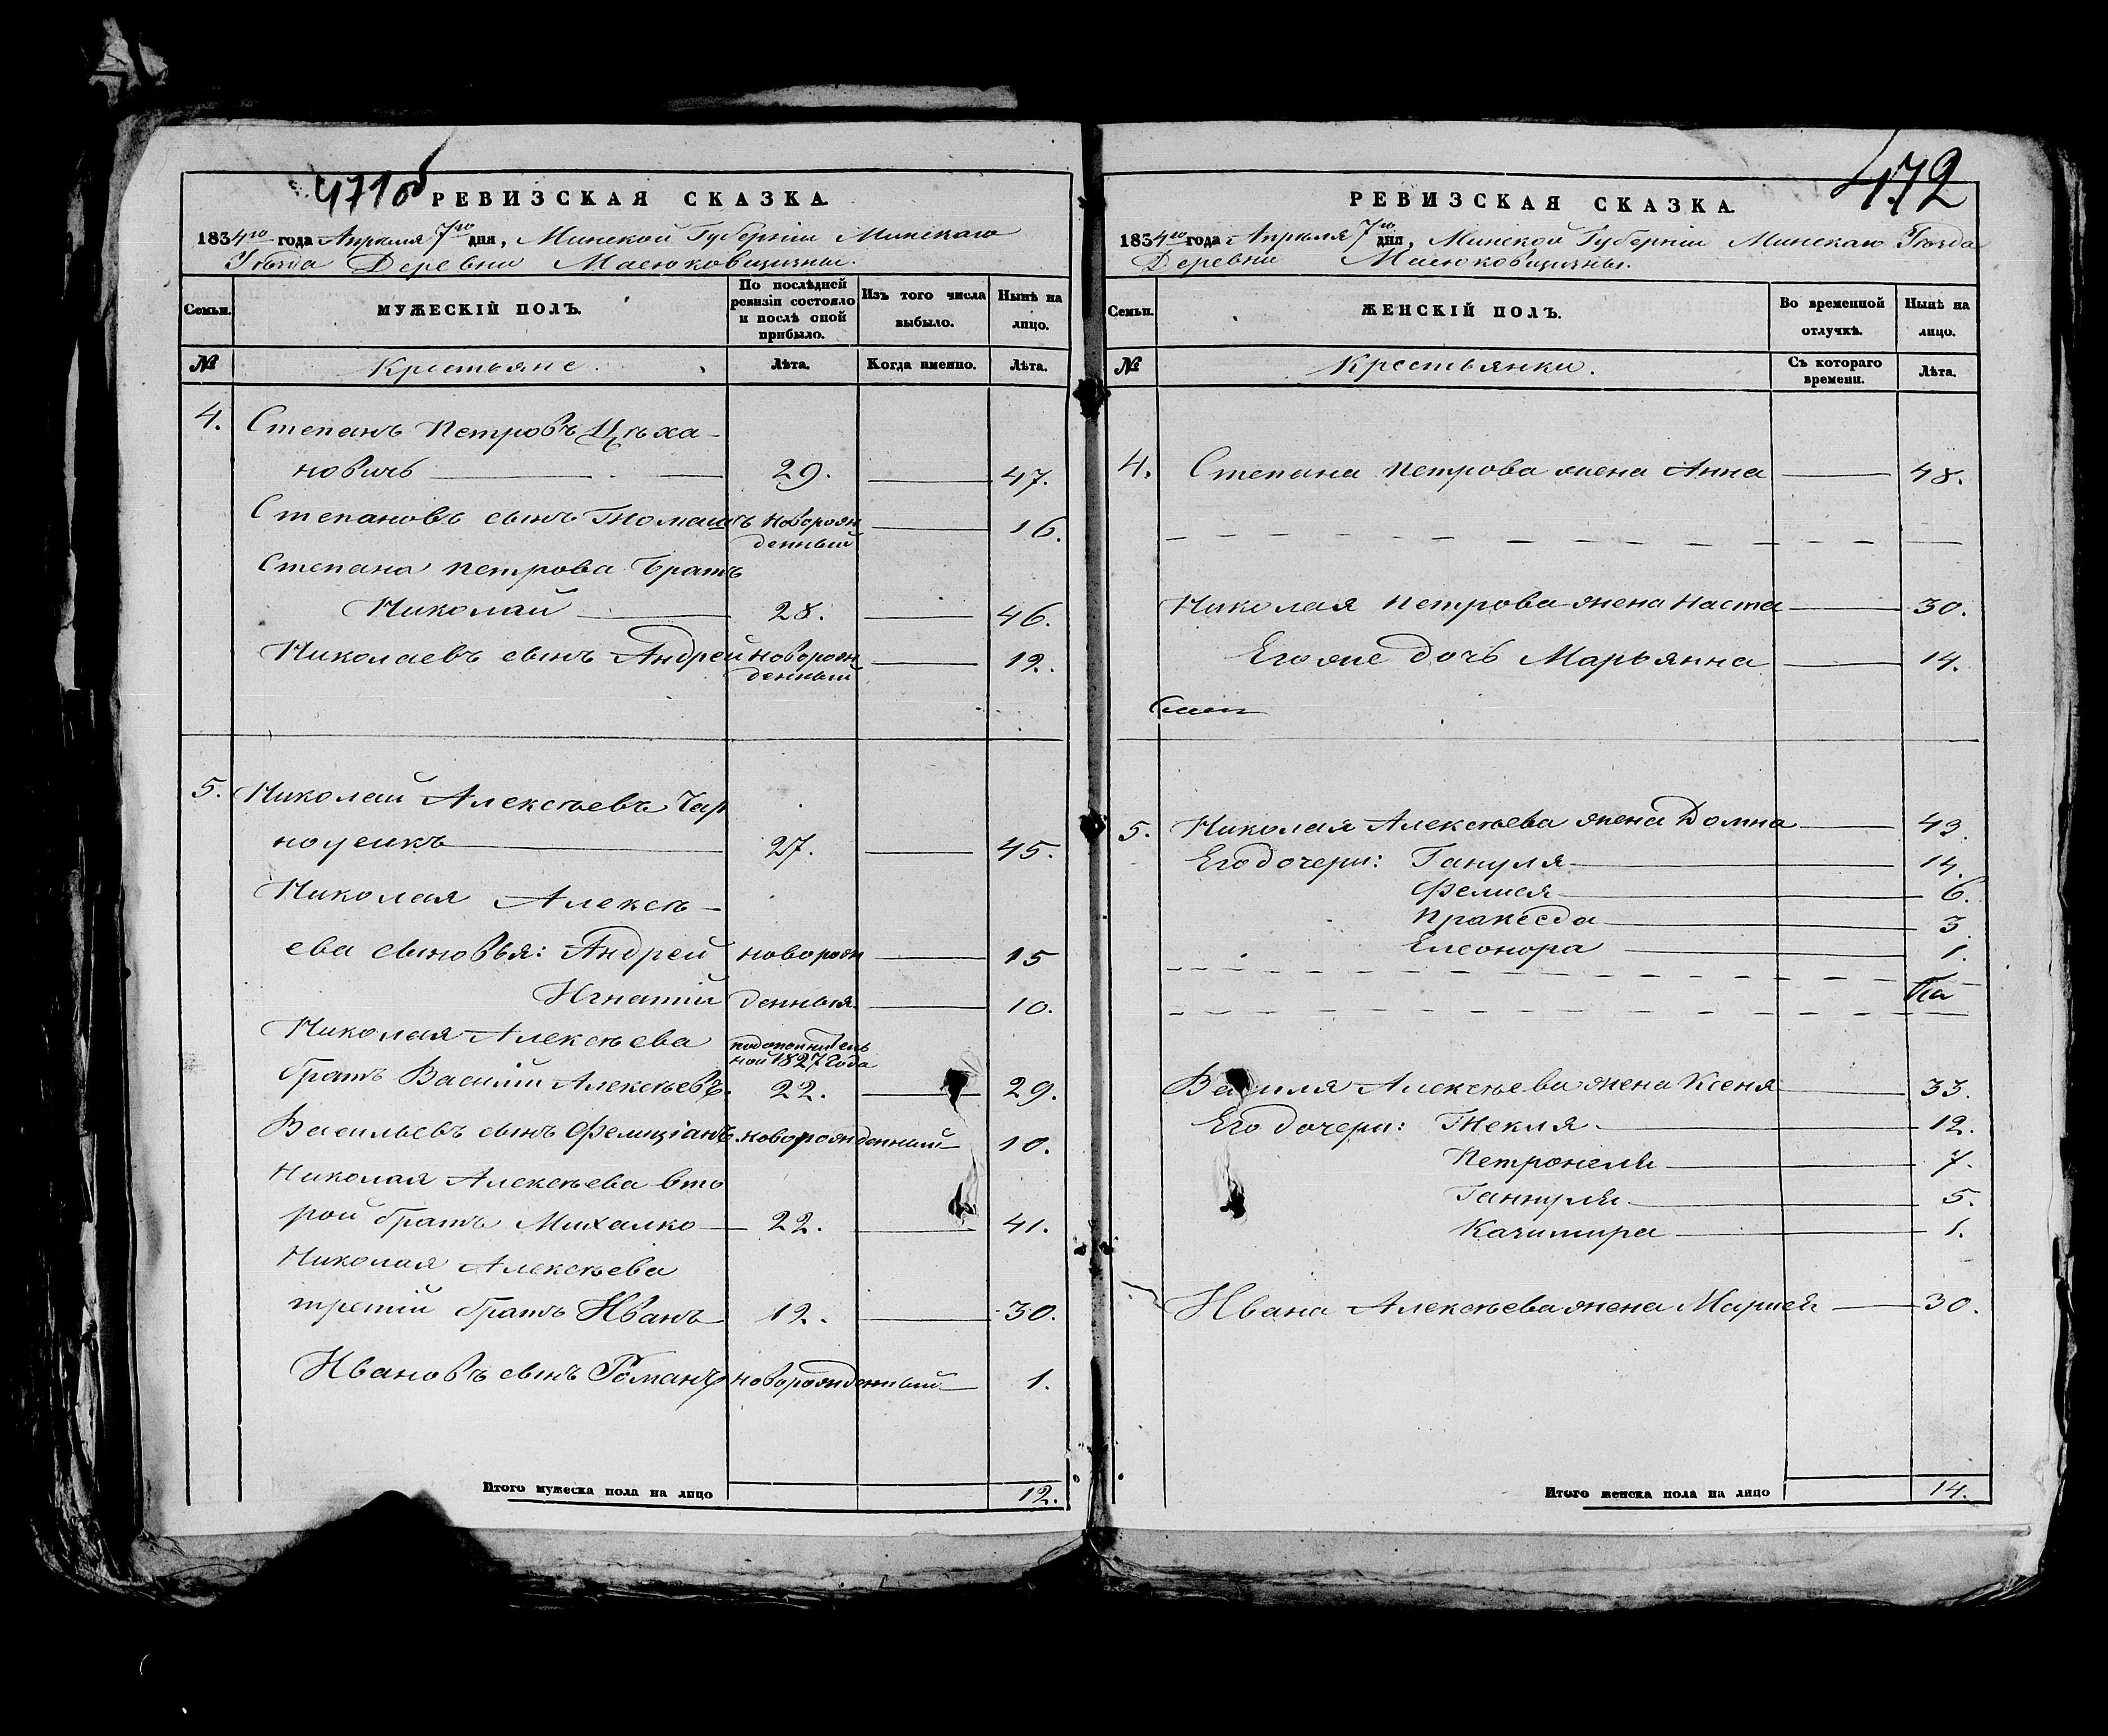 471об
РЕВИЗСКАЯ СКАЗКА.
1834го года Апреля 7го дня, Минской Губернии Минскаго
Уѣзда Деревни Масюковщизны.
Семьи.
МУЖЕСКІЙ ПОЛЪ.
По послѣдней ревизіи состояло и послѣ оной прибыло.
Изъ того числа выбыло.
Нынѣ на лицо.
№
Крестьяне.
Лѣта.
Когда именно.
Лѣта.
4. Степанъ Петровъ Цѣха-
новичъ 29. 47.
Степановъ сынъ Томашъ новорож
денный 16.
Степана Петрова братъ
Николай 28. 46.
Николаевъ сынъ Андрей новорож
денный 12.
5. Николай Алексѣевъ Чар
ноусикъ 27. 45.
Николая Алексѣ-
ева сыновья: Андрей новорож 15
Игнатій денныя 10.
Николая Алексѣева подополнитель
ной 1827 года
братъ Василій Алексѣевъ. 22. 29.
Васильевъ сынъ Фелиціанъ новорожденный 10.
Николая Алексѣева вто
рой братъ Михалко 22. 41.
Николая Алексѣева
третій братъ Иванъ 12. 30.
Ивановъ сынъ Романъ новорожденный 1.
Итого мужеска пола на лицо 12.
472
РЕВИЗСКАЯ СКАЗКА.
1834го года Апреля 7го дня, Минской Губернии Минскаго Уѣзда
Деревни Масюковщизны.
Семьи.
ЖЕНСКІЙ ПОЛЪ.
Во временной отлучкѣ.
Нынѣ на лицо.
№
Крестьянки.
Съ котораго времени.
Лѣта.
4. Степана Петрова жена Анна 48.
Николая Петрова жена Наста 30.
Егоже дочь Марьянна 14.
5. Николая Алексѣева жена Домна 43.
Его дочери: Гануля 14.
Фелися 6.
Праксeда 3.
Елеонора 1.
Василя Алексѣева жена Ксеня 33.
Его дочери: Текля 12.
Петронеля 7.
Ганнуля 5.
Казимира 1.
Ивана Алексѣева жена Марыся 30.
Итого женска пола на лицо 14.